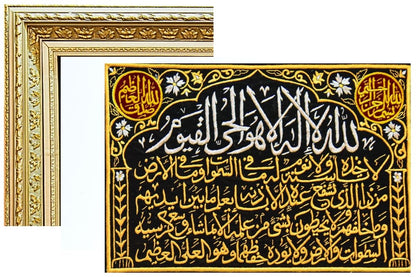 الله لا إله إلا هو الحي القيوم
لا تأخذه سنة ولا نوم له ما في السموات وما في الأرض
من ذا الذي يشفع عنده إلا بإذنه يعلم ما بين أيديهم
وما خلفهم ولا يحيطون بشيء من علمه إلا بما شاء وسع كرسيه
السموات والأرض ولا يؤده حفظهما وهو العلي العظيم